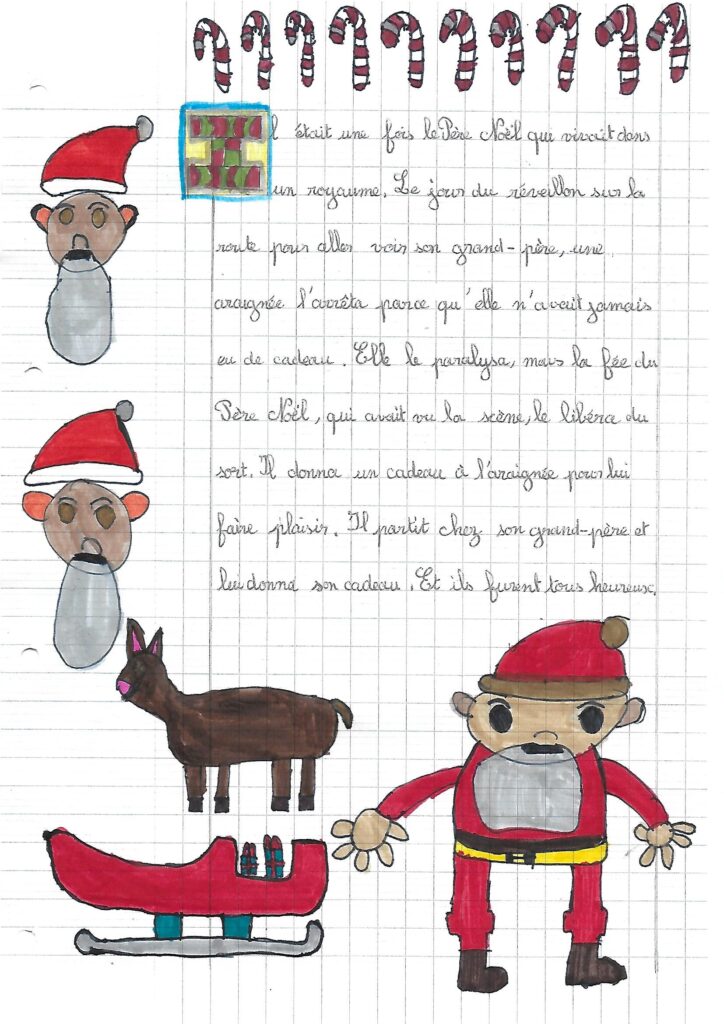 Il était une fois le Père Noël qui vivait dans
un royaume. Le jour du réveillon sur la
route pour aller voir son grand-père, une
araignée l'arrêta parce qu'elle n'avait jamais
eu de cadeau. Elle le paralysa, mais la fée du
Père Noël, qui avait vu la scène, le libéra du
sort. Il donna un cadeau à l'araignée pour lui
faire plaisir. Il partit chez son grand-père et
lui donna son cadeau. Et ils furent tous heureux.